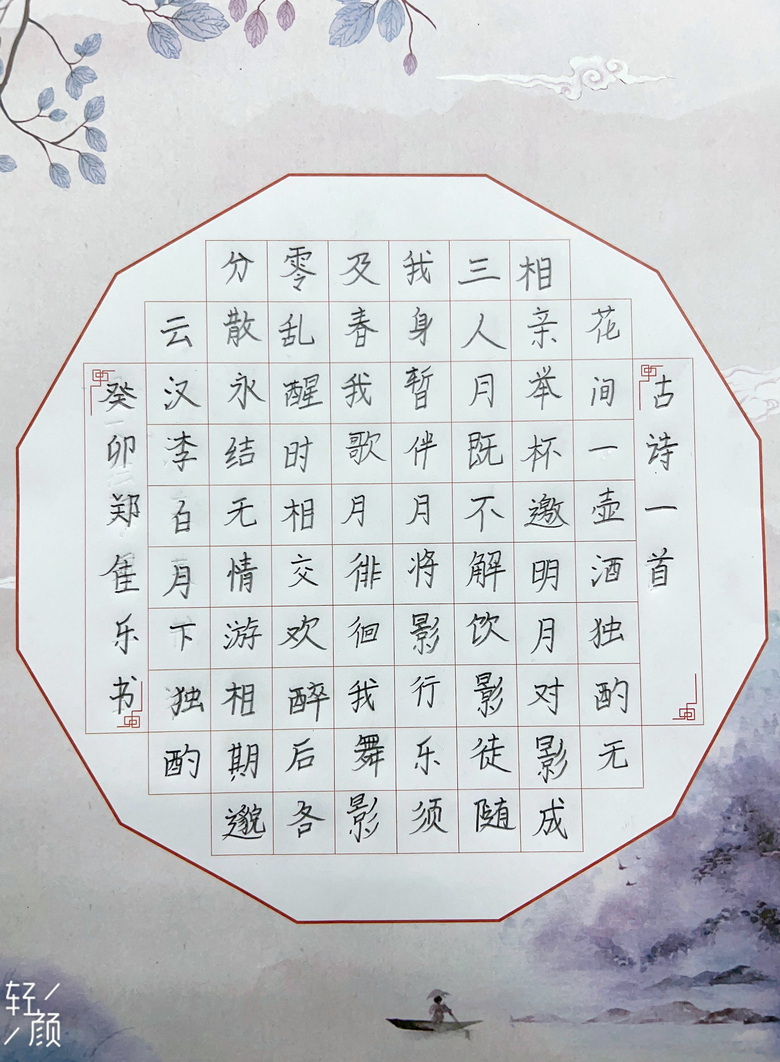 古诗一首
花间一壶酒独酌无
相亲举杯邀明月对影成
三人月既不解饮影徒随
我身暂伴月将影行乐须
及春我歌月徘徊我舞影
零乱醒时相交欢醉后各
分散永结无情游相期邈
云汉李白月下独酌
癸卯郑隹乐书
轻颜